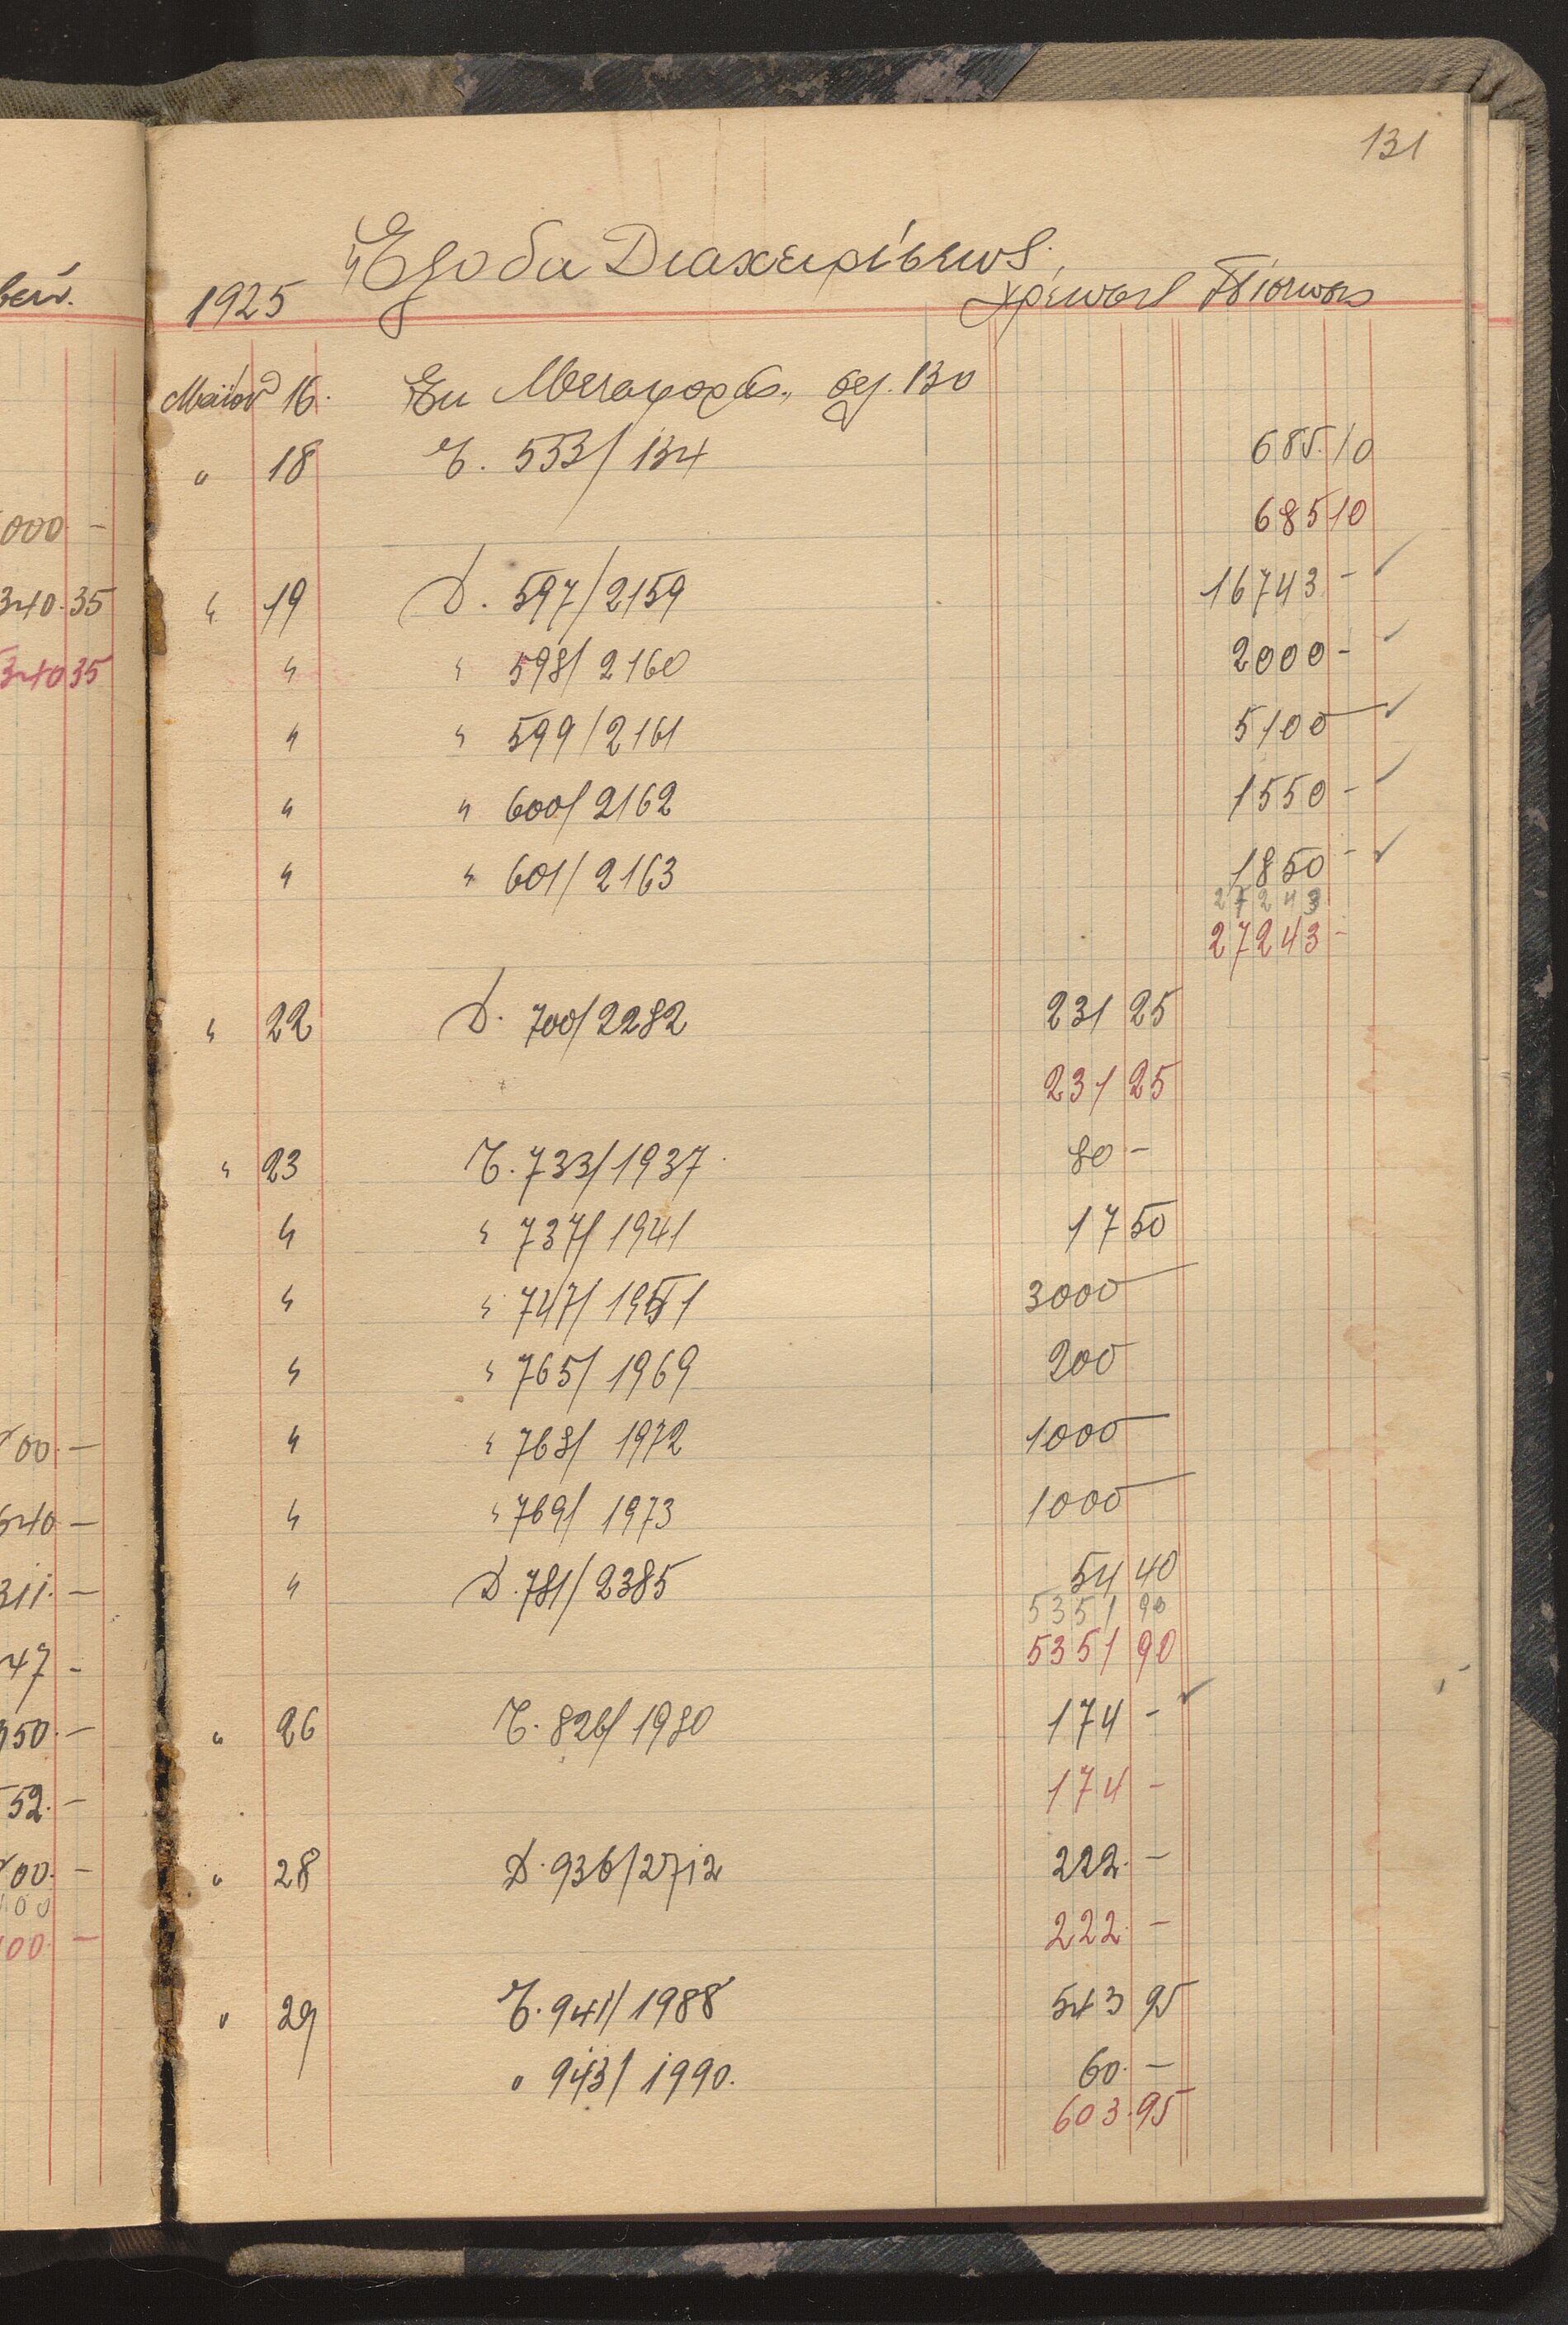 131
Ἔξοδα Διαχειρίσεως.
1925 Χρέωσις Πίστωσις
Μαΐου 16. Ἐκ Μεταφορᾶς, σελ. 130
" 18 Τ. 533/134 685.10
685 10
" 19 Δ. 597/2159 16743 - ✓
" " 598/2160 2000 - ✓
" " 599/2161 5100 - ✓
" " 600/2162 1550 - ✓
" " 601/2163 1850 - ✓
27243
27243 -
" 22 Δ. 700/2282 231 25
231 25
" 23 Τ. 733/1937 80 -
" " 737/1941 17 50
" " 747/1951 3000 -
" " 765/1969 200
" " 768/1972 1000 -
" " 769/1973 1000 -
" Δ. 781/2385 54 40
5351 90
5351 90
" 26 Τ. 826/1980 174 - ✓
174 -
" 28 Δ. 936/2712 222. -
222. -
" 29 Τ. 941/1988 543 95
" 943/1990. 60. -
603.95
000. -
340.35
340 35
00. -
640 -
311. -
47 -
350. -
52. -
00. -
00
00. -